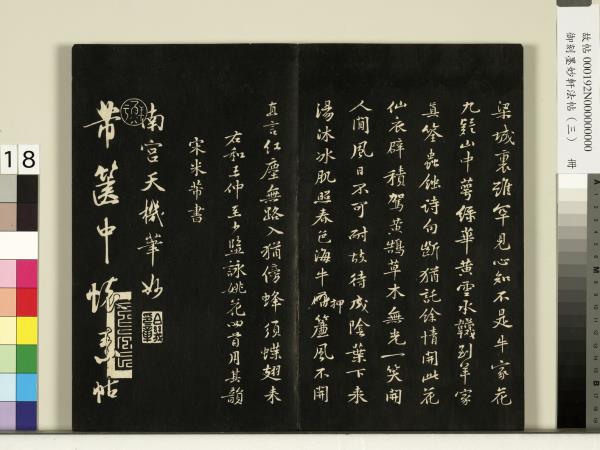 梁城裏雖罕見心知不是牛家花
九疑山中萼綠華黃雲承韈到羊家
真筌蟲蝕詩句斷猶託餘情開此花
仙衣襞積駕黃鵠草木無光一笑開
人間風日不可耐故待成陰葉下來
湯沐冰肌照春色海牛壓簾風不開
押
直言紅塵無路入猶傍蜂須蝶翅來
右和王仲至少監詠姚花四首用其韻
宋米芾書
南宮天機筆妙
芾篋中懷素帖
故帖 000192N000000000
御刻墨妙軒法帖(三) 冊
18